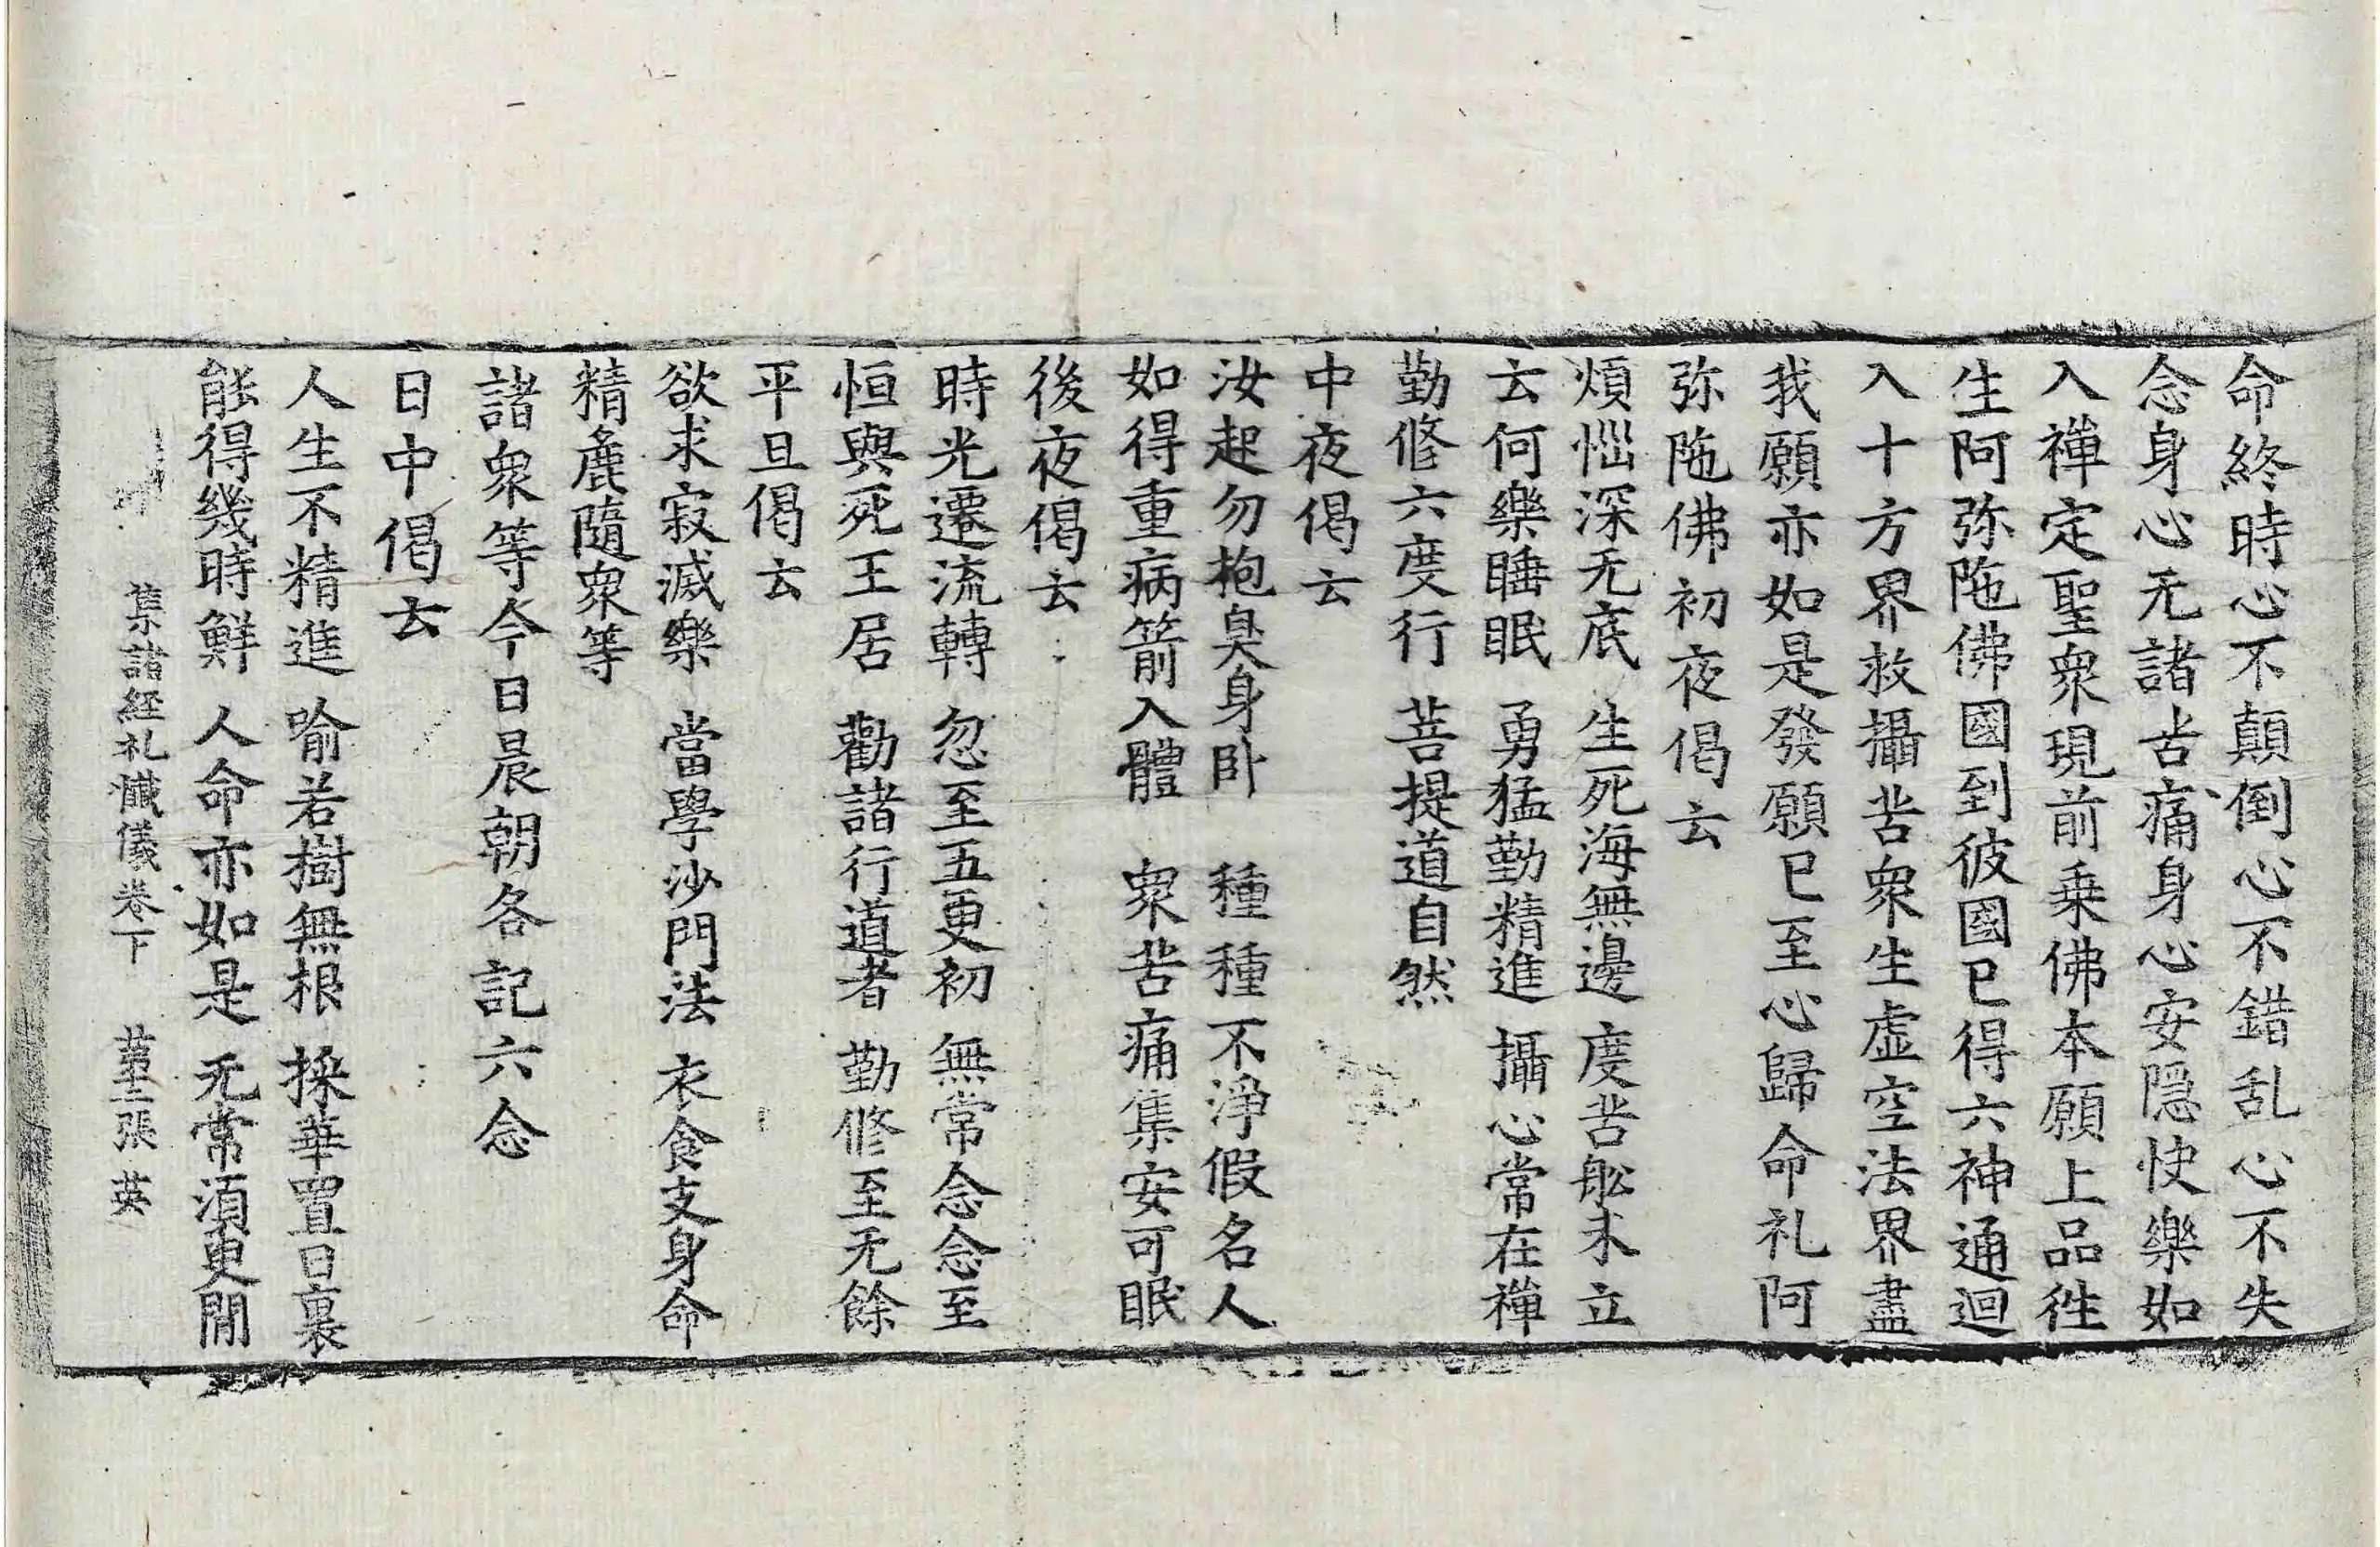 命終時心不顛倒心不錯乱心不失
念身心无諸苦痛身心安隠快樂如
入禪定聖衆現前乗佛本願上品徃
生阿弥陁佛國到彼國已得六神通迴
入十方界救攝苦衆生虚空法界盡
我願亦如是發願已至心歸命礼阿
弥陁佛初夜偈云
煩惱深无底　生死海無邊　度苦舩未立
云何樂睡眠　勇猛勤精進　攝心常在禪
勤修六度行　菩提道自然
中夜偈云
汝起勿抱臭身卧　種種不淨假名人
如得重病箭入體　衆苦痛集安可眠
後夜偈云
時光遷流轉　忽至五更初　無常念念至
恒與死王居　勸諸行道者　勤修至无餘
平旦偈云
欲求寂滅樂　當學沙門法　衣食支身命
精麁隨衆等
諸衆等今日晨朝各記六念
日中偈云
人生不精進　喻若樹無根　採華置日裏
能得幾時鮮　人命亦如是　无常須更間
集諸経礼懺儀卷下　張　英